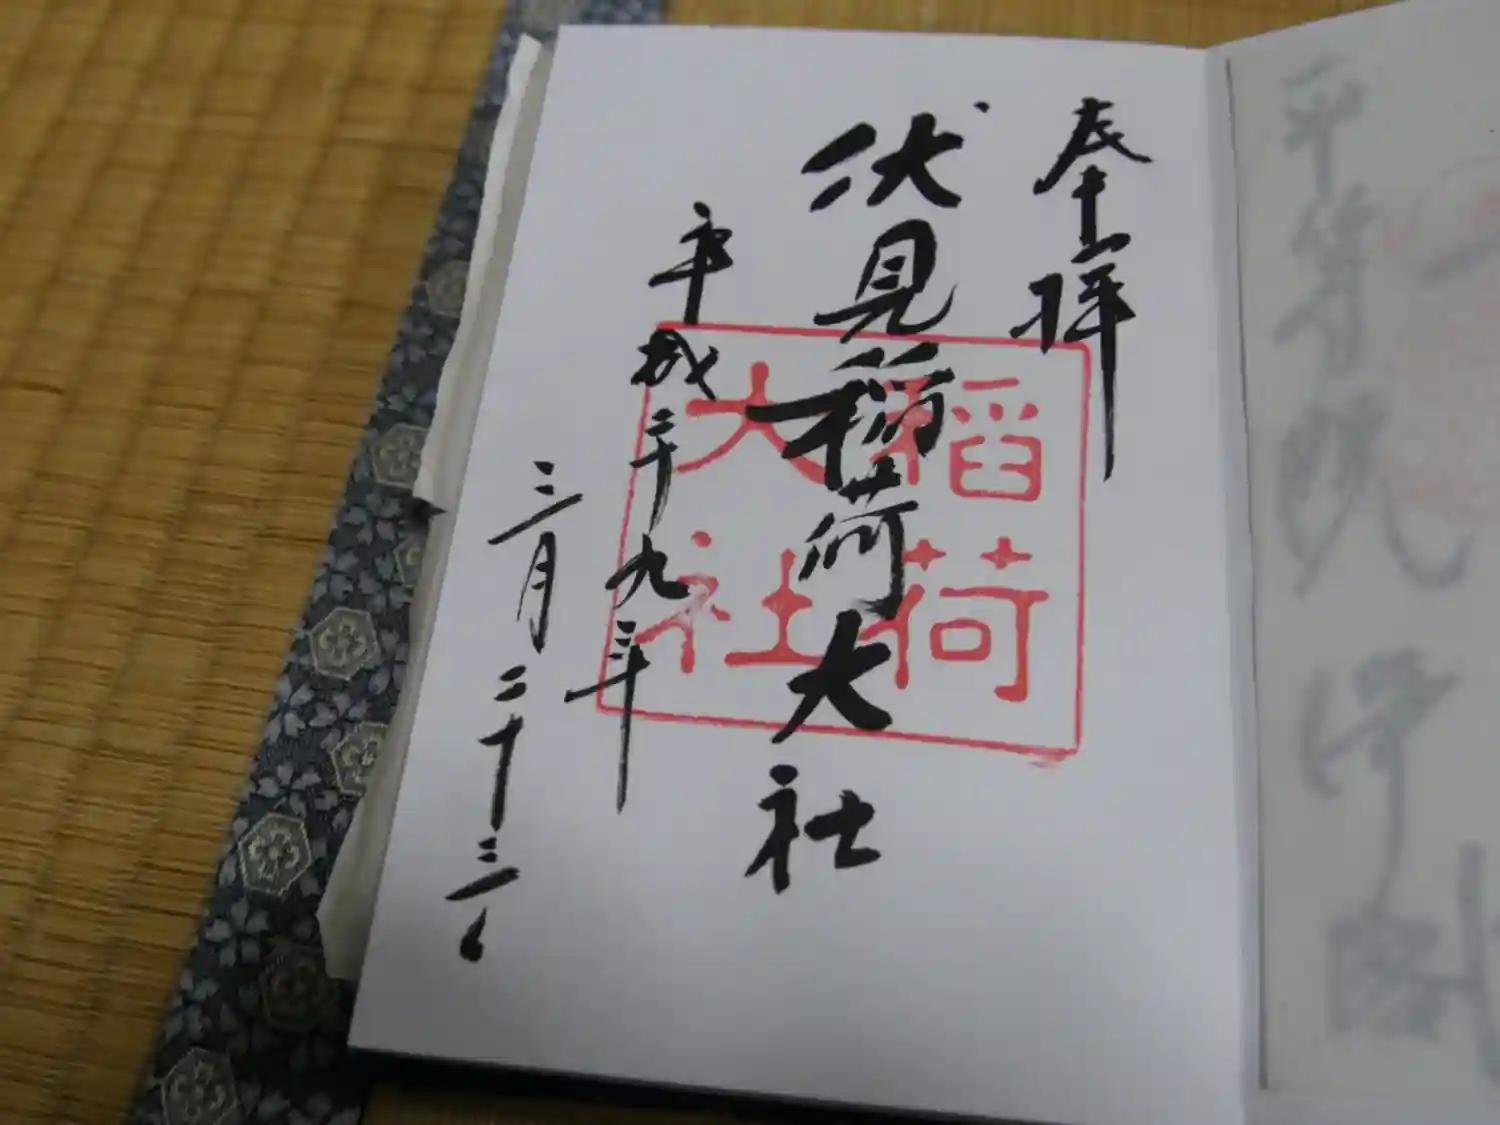 奉拝
伏見稲荷大社
平成二十九年
三月二十三日
稲荷
大社